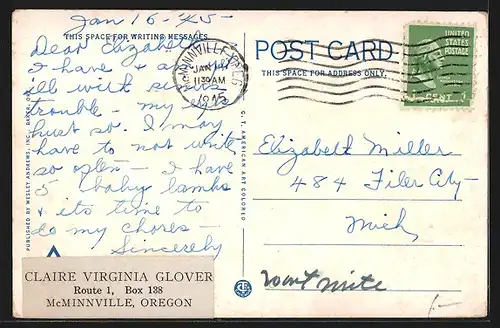 Jan 16 - 45 -
THIS SPACE FOR WRITING MESSAGES
Dear Elizabeth
I have & am
ill with sinus
trouble - my
hurt so. I may
have to not write
so often - I have
5 baby lambs
& its time to
do my chores -
Sincerely
CLAIRE VIRGINIA GLOVER
Route 1, Box 138
McMINNVILLE, OREGON
PUBLISHED BY WESLEY ANDREWS, INC.
C. T. AMERICAN ART COLORED
McMINNVILLE OREG
JAN
1130 AM
1945
POST CARD
THIS SPACE FOR ADDRESS ONLY
UNITED
STATES
POSTAGE
1 CENT 1
Elizabeth Miller
484 Filer City -
Mich
wont write
1-